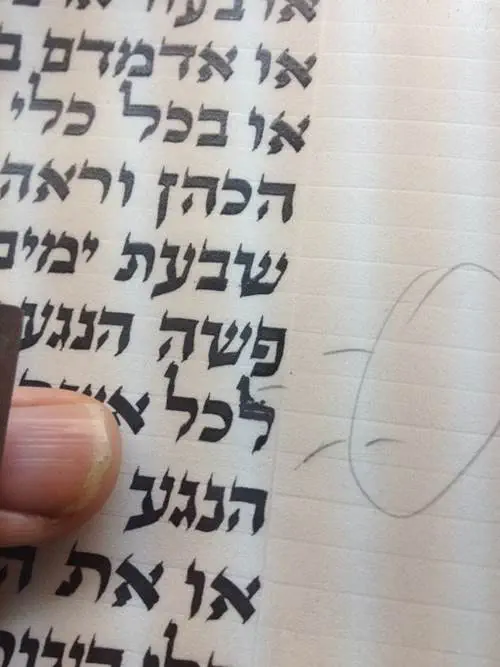 או בעור או
או אדמדם
או בכל כלי
הכהן וראה
שבעת ימים
פשה הנגע
לכל
הנגע
או את